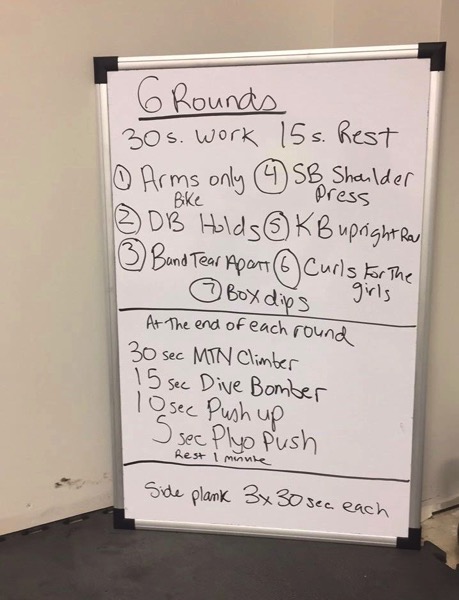 6 Rounds
30s. Work 15s. Rest
① Arms only Bike
② DB Holds
③ Band Tear Apart
④ SB Shoulder Press
⑤ KB upright Row
⑥ Curls For The girls
⑦ Box dips
At The end of each round
30 sec MTN Climber
15 sec Dive Bomber
10 sec Push up
5 sec Plyo Push
Rest 1 minute
Side plank 3x30 sec each